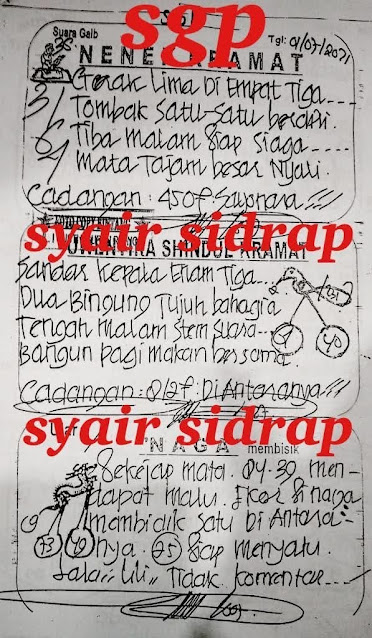 sgp
Suara Gaib
Tgl: 01/07/2021
NENEK KRAMAT
Gerak Lima Di Empat Tiga----
Tombak Satu-Satu berdiri.
Tiba malam Siap Siaga----
Mata Tajam besar Nyali.
Cadangan: 450f.
syair sidrap
SHINDUL KRAMAT
Sandar Kepala Enam Tiga---
Dua Bingung Tujuh bahagia
Tengah malam Stem Suara---
Bangun pagi makan bersama.
Cadangan: 812f. Di Antaranya
syair sidrap
"NAGA"
membisik
Sekejap mata. 04-39 men-
dapat malu. Ekor Si naga
membidik Satu Di Antara-
nya. 75 Siap menyatu.
"Lili" Tidak komentar---